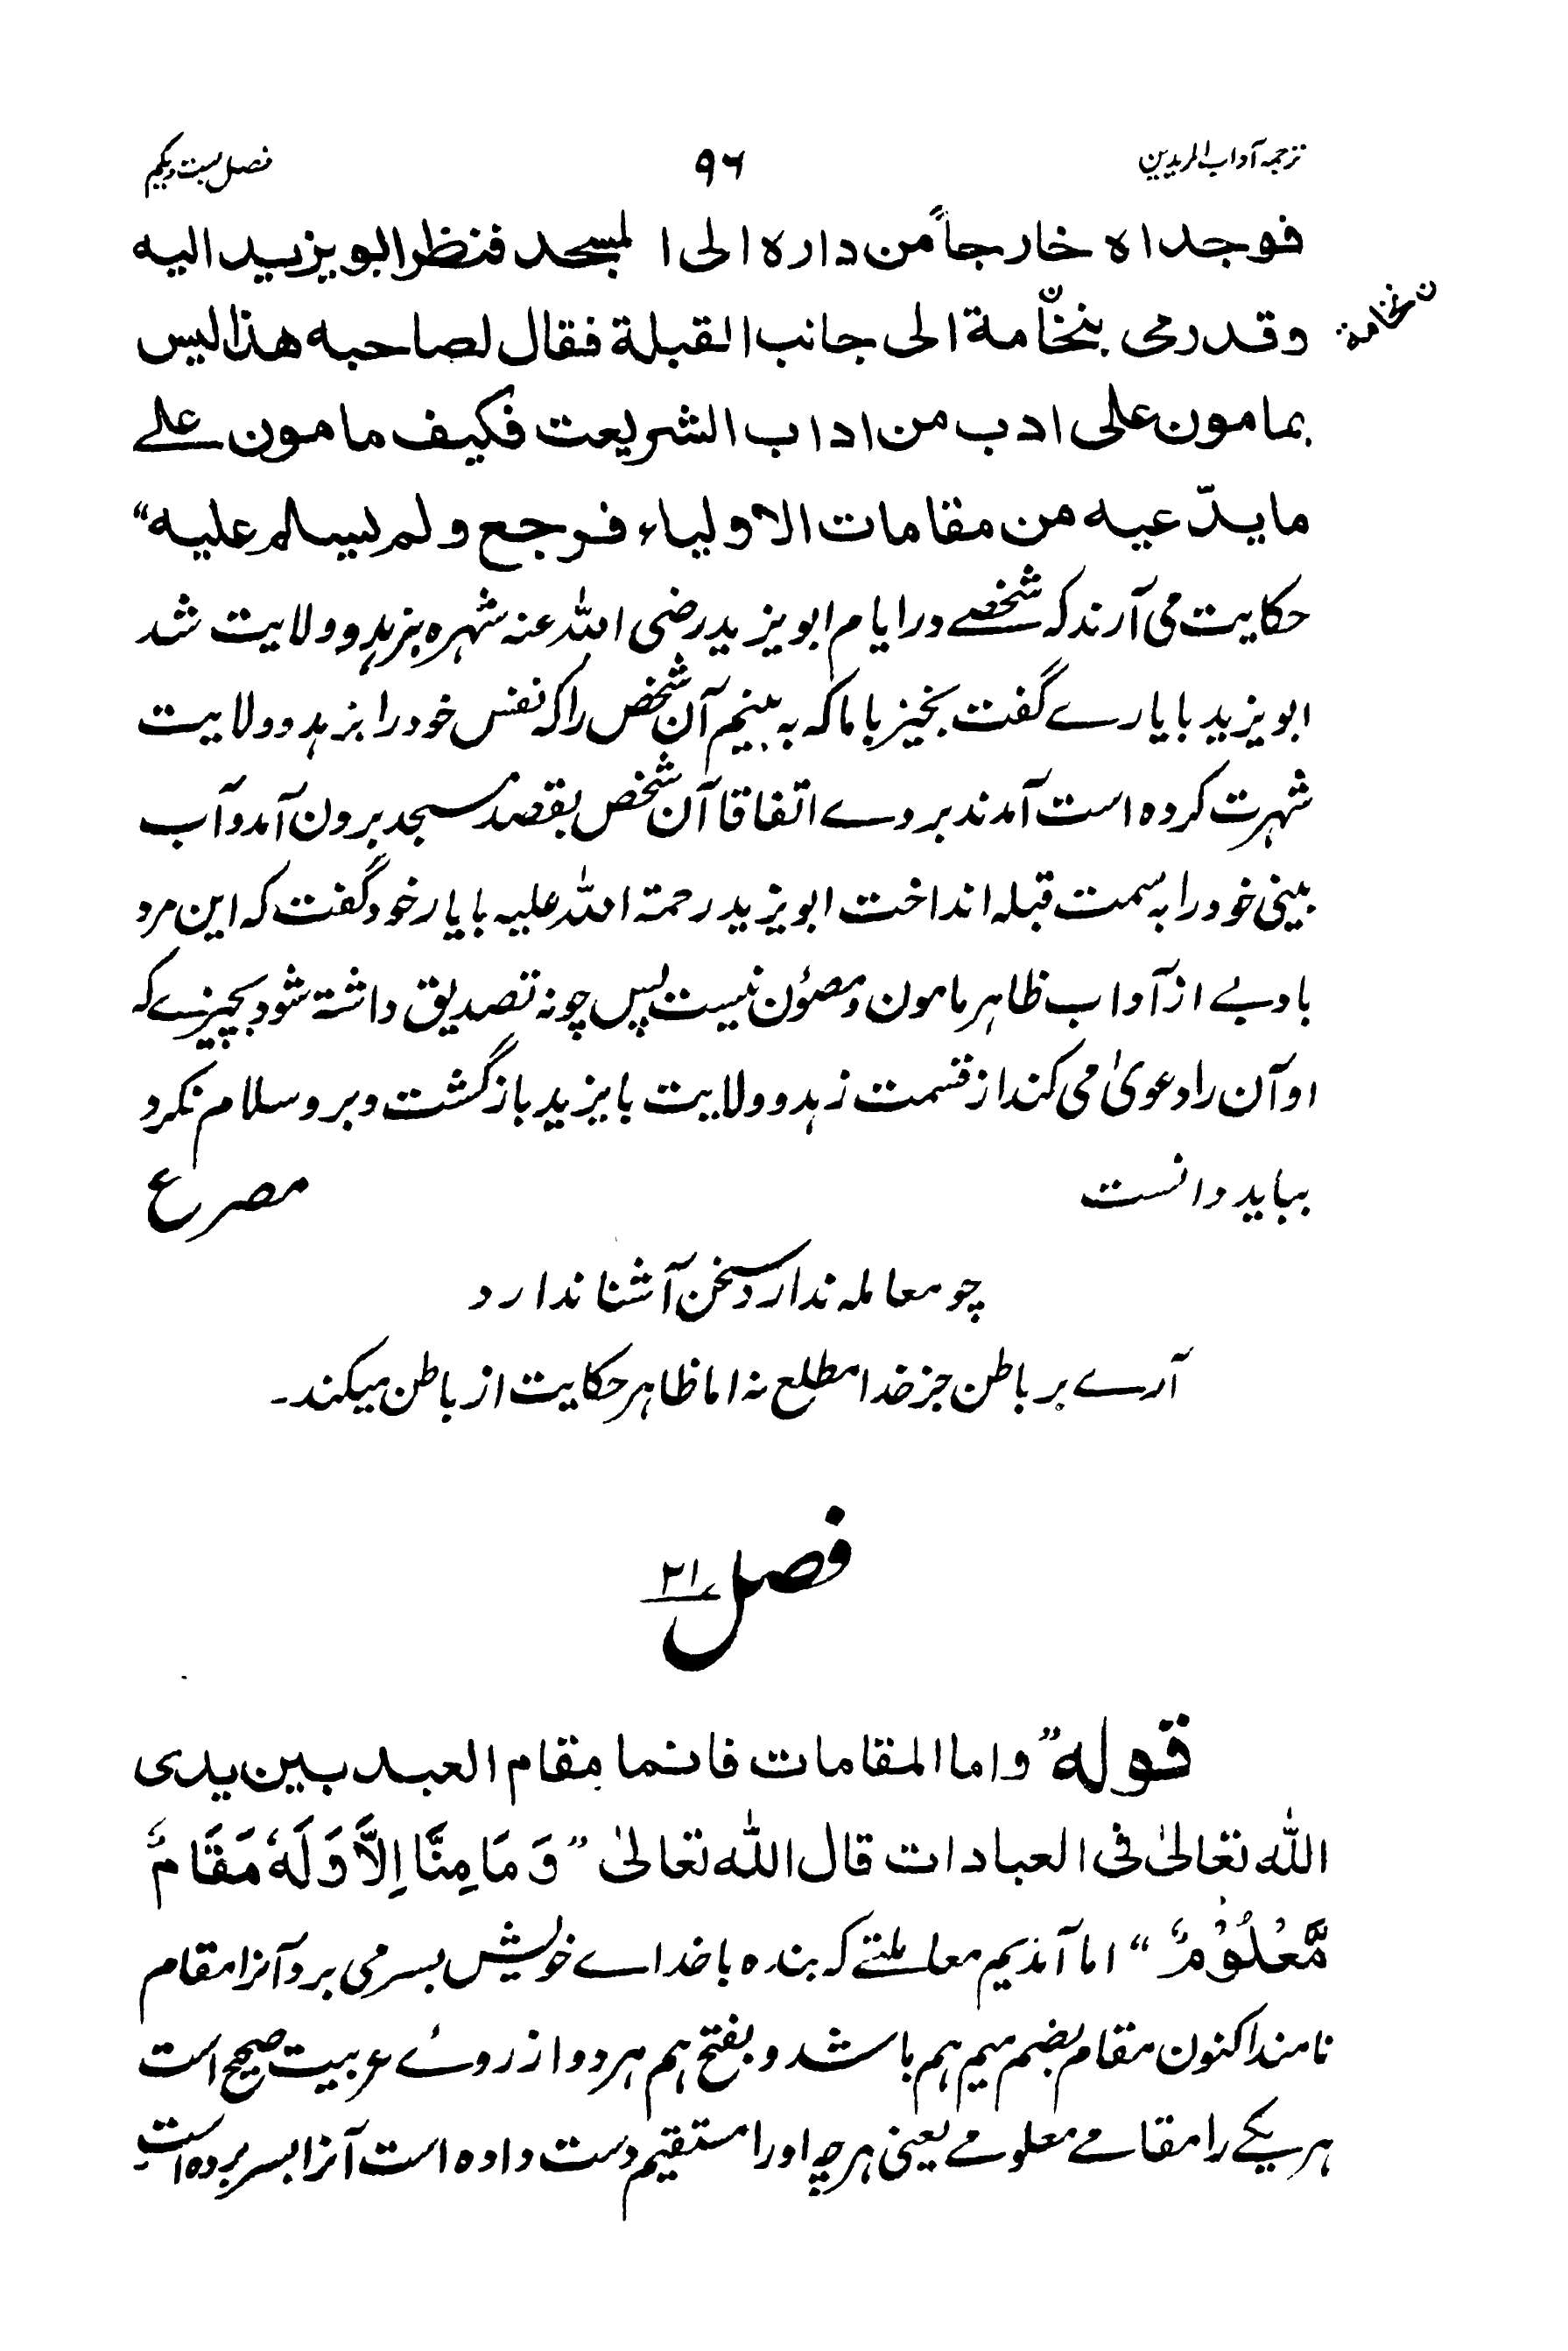 ترجمہ آداب المریدین ۹۶ فصل بست ویکم
فوجداه خارجاً من داره الی المسجد فنظر ابو یزید الیه
وقد رمی بنخّامة الی جانب القبلة فقال لصاحبه هذا لیس
ن نخامة
بمامون علی ادب من اداب الشریعت فکیف مامون علے
ما یدّعیه من مقامات الاولیاء فرجع ولم یسلم علیه“
حکایت می آرند که شخصے در ایام ابو یزید رضی اللہ عنه شهره بزہد و ولایت شد
ابو یزید با یارے گفت بخیز با ما که به بینیم آن شخص را که نفس خود را بزہد و ولایت
شہرت کرده است آمدند بروے اتفاقا آن شخص بقصد مسجد برون آمد و آب
بینی خود را به سمت قبله انداخت ابو یزید رحمۃ اللہ علیہ با یار خود گفت که این مرد
بادبے از آداب ظاهر مامون و مصئون نیست پس چونه تصدیق داشته شود بچیزے که
او آن را دعویٰ می کند از قسمت زہد و ولایت بایزید بازگشت و برو سلام نکرد
بباید دانست مصرع
چو معامله ندارد سخن آشنا ندارد
آرے بر باطن جز خدا مطلع نه اما ظاهر حکایت از باطن میکند۔
فصل ۲۱
قوله ”واما المقامات فانما مقام العبد بین یدی
اللّٰه تعالیٰ فی العبادات قال اللّٰه تعالیٰ ”وَمَا مِنَّا اِلَّا وَلَهٗ مَقَامٌ
مَّعْلُوْمٌ“ اما آندیم معاملتے که بنده با خداے خویش بسر می برد آنرا مقام
نامند اکنون مقام بضم میم ہم باشد و بفتح ہم ہر دو از روئے عربیت صحیح است
ہر یکے را مقامے معلومے یعنی ہرچه او را مستقیم دست داده است آنرا بسر برده است